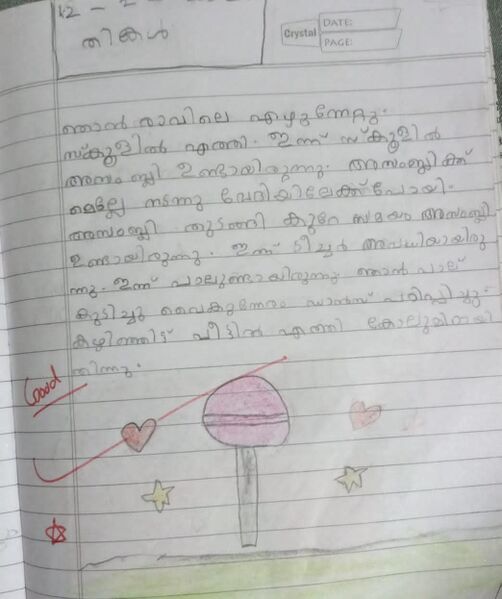 12 - 2 -
തിങ്കൾ
Crystal
DATE:
PAGE:
ഞാൻ രാവിലെ എഴുന്നേറ്റു.
സ്കൂളിൽ എത്തി. ഇന്ന് സ്കൂളിൽ
അസംബ്ലി ഉണ്ടായിരുന്നു. അസംബ്ലിക്ക്
മെല്ലേ നടന്നു വേദിയിലേക്ക് പോയി.
അസംബ്ലി തുടങ്ങി കുറേ സമയം അസംബ്ലി
ഉണ്ടായിരുന്നു. ഇന്ന് ടീച്ചർ അവധിയായിരു
ന്നു. ഇന്ന് പാലുണ്ടായിരുന്നു. ഞാൻ പാല്
കുടിച്ചു വൈകുന്നേരം ഡാൻസ് പഠിപ്പിച്ചു.
കഴിഞ്ഞിട്ട് വീട്ടിൽ എത്തി കോലുമിഠായി
തിന്നു.
Good